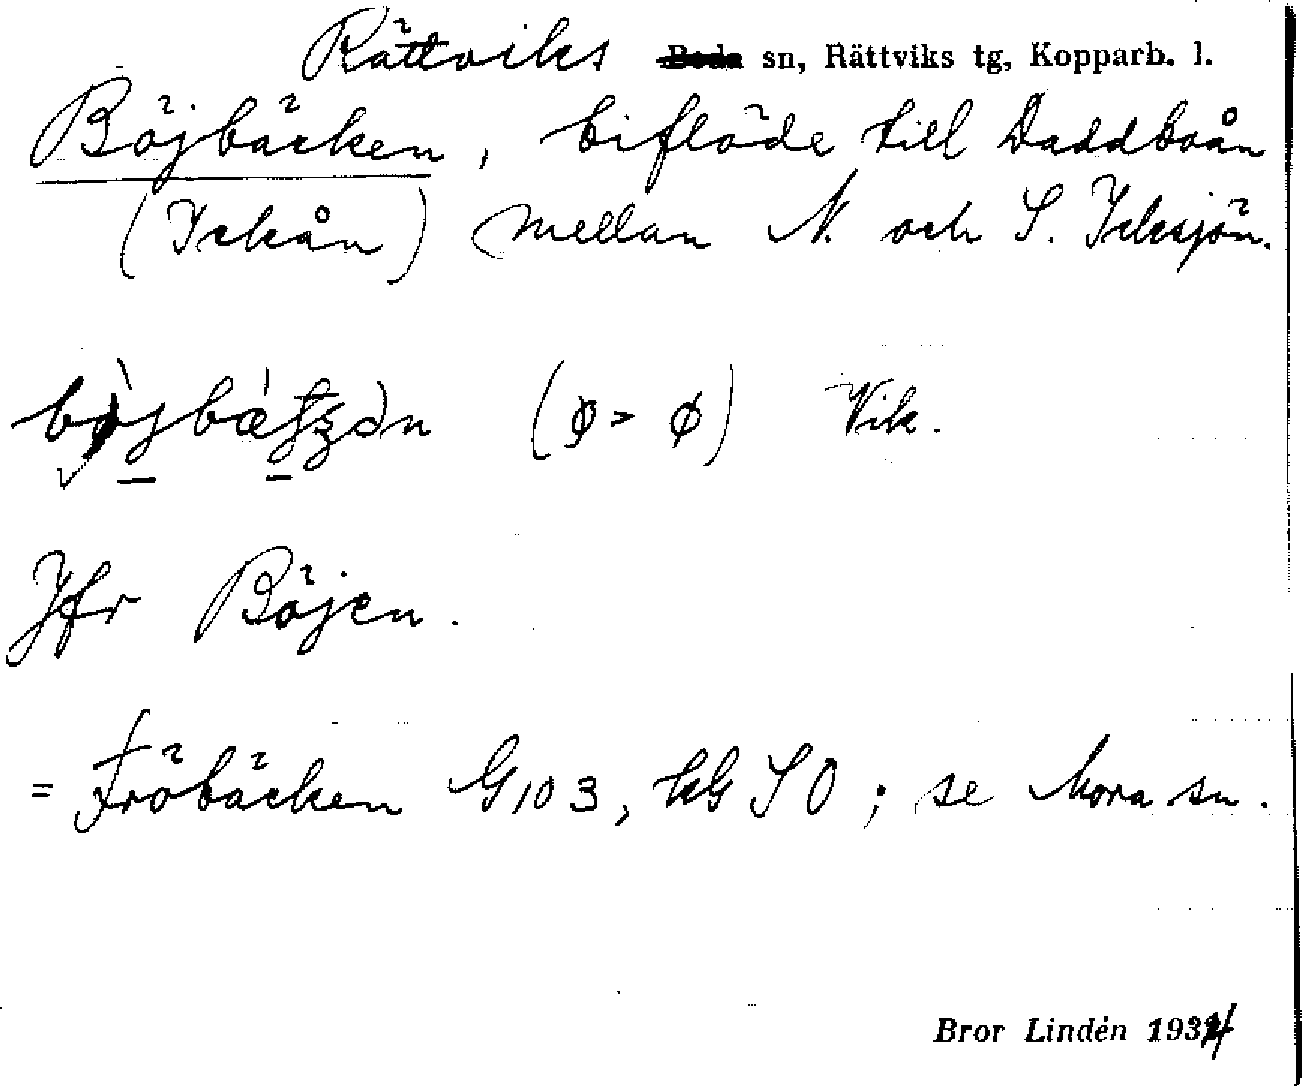 Rättviks Boda sn, Rättviks tg, Kopparb. l.
Böjbäcken, biflöde till Daddboån
(Ickån) mellan N. och S. Icksjön.
(ǫ > ø) Vik.
Jfr Böjen.
= Fröbäcken G103, hG SO; se Mora sn.
Bror Lindén 1934